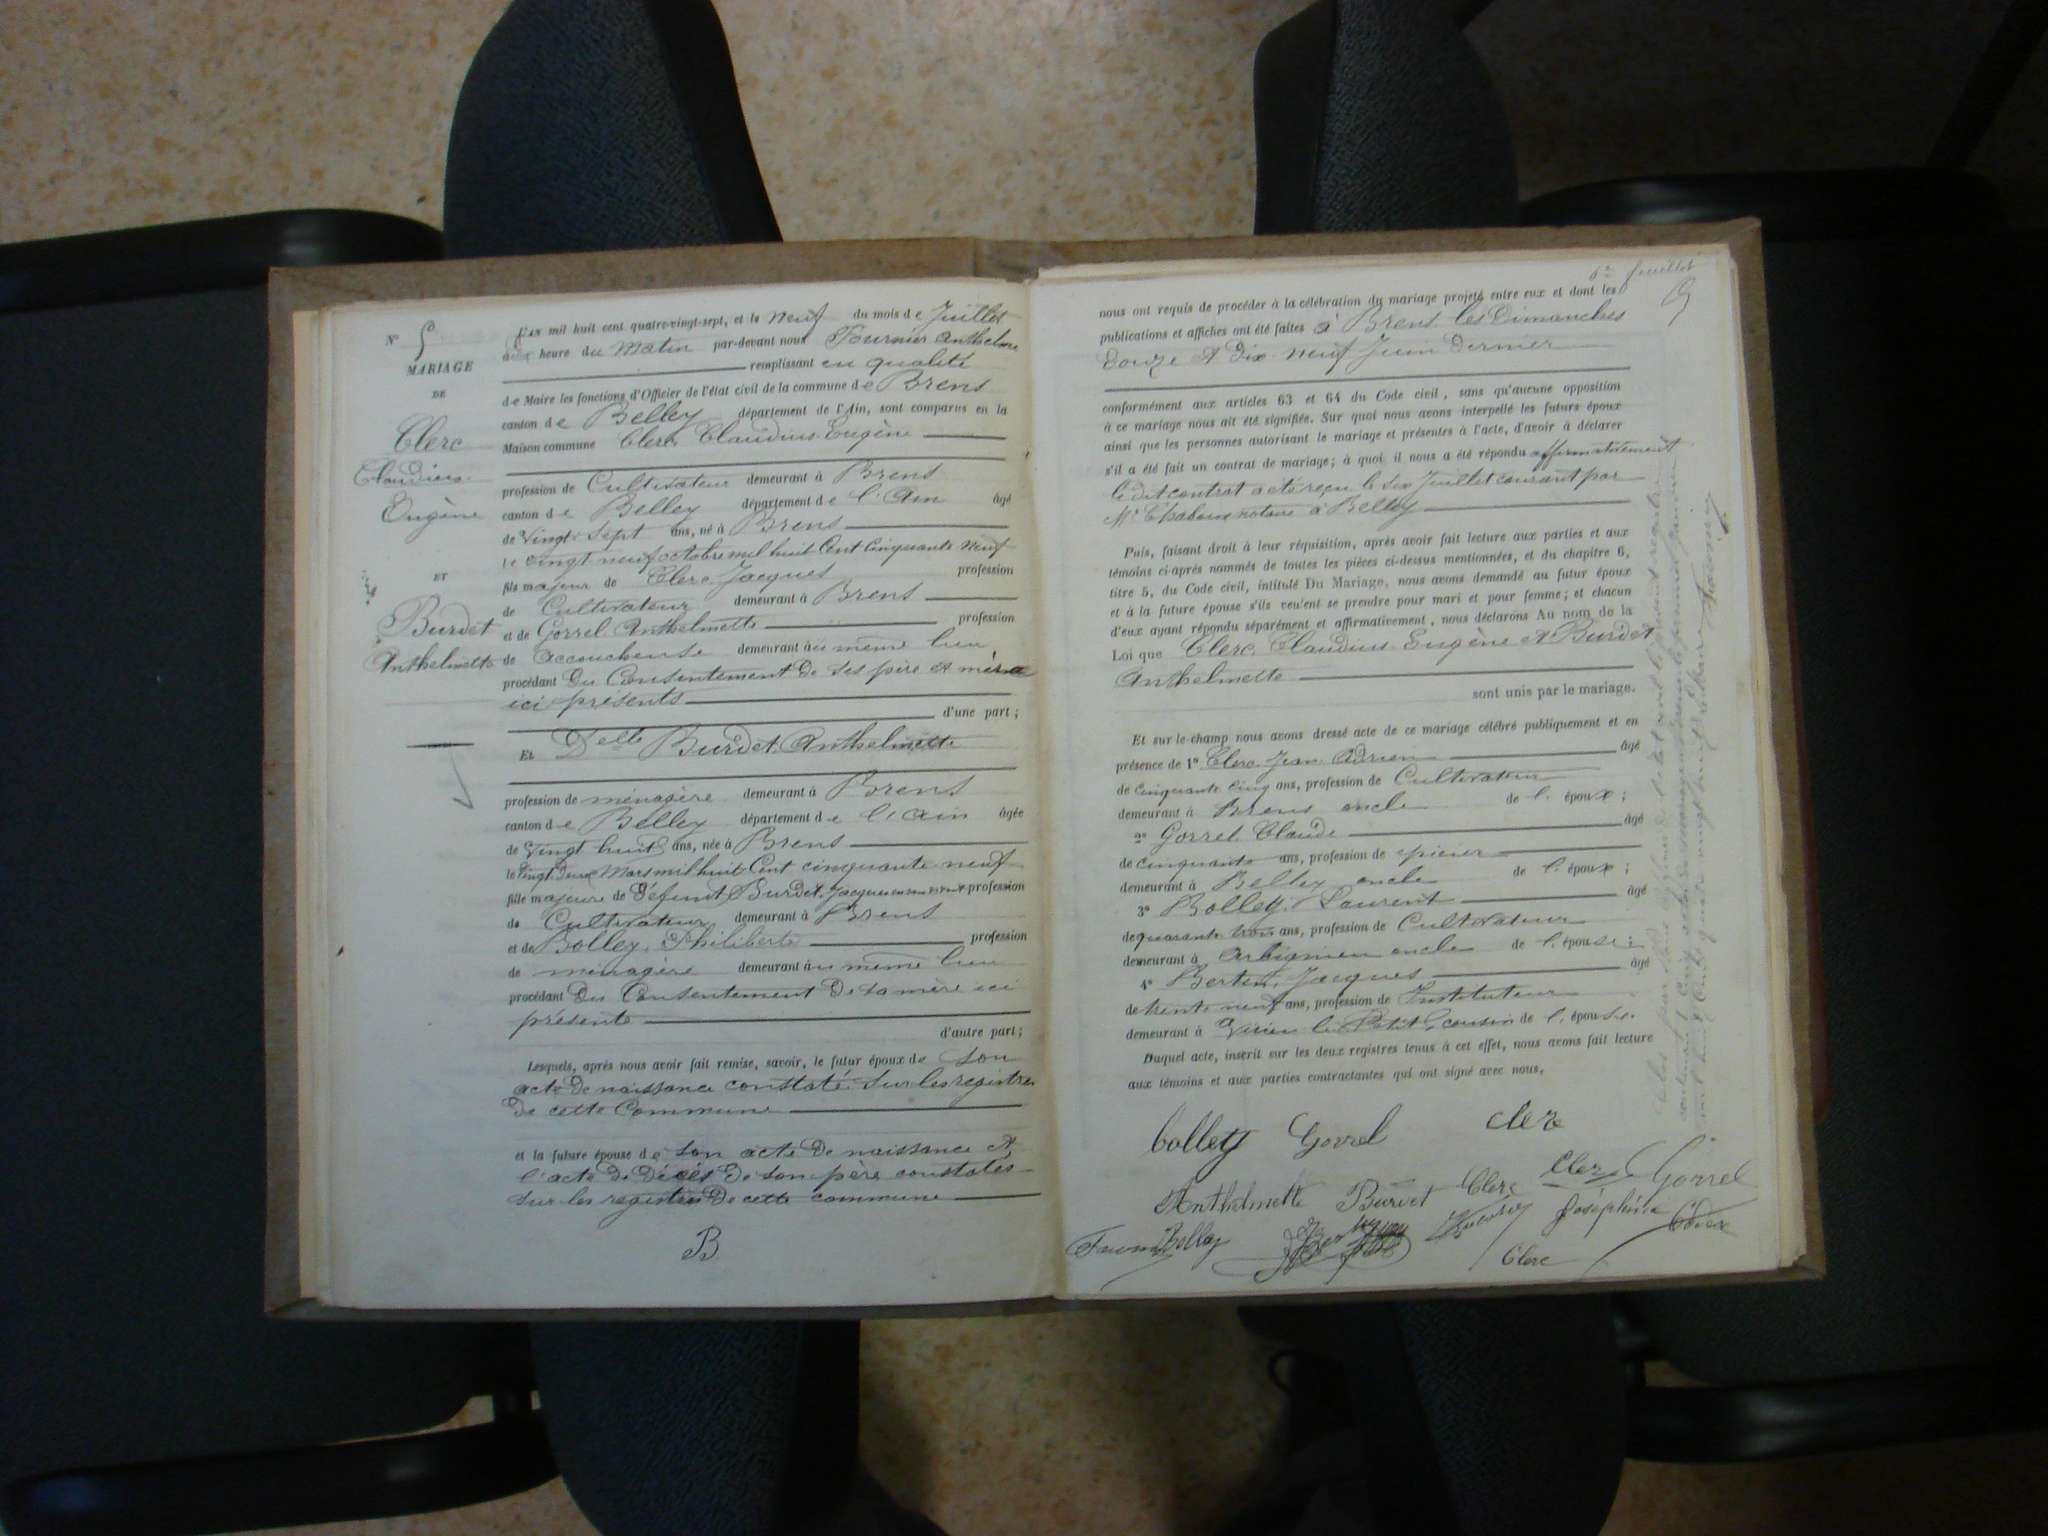 N° 5
MARIAGE
DE
Clerc
Claudius
Eugène
ET
Burdet
Anthelmette
L'AN mil huit cent quatre-vingt-sept, et le neuf du mois de Juillet
heure du Matin par-devant nous Fournier Anthelme
remplissant en qualité
de Maire les fonctions d'Officier de l'état civil de la commune de Brens
canton de Belley département de l'Ain, sont comparus en la
Maison commune Clerc Claudius Eugène
profession de Cultivateur demeurant à Brens
canton de Belley département de l'Ain âgé
de Vingt sept ans, né à Brens
le vingt neuf octobre mil huit Cent Cinquante neuf
fils majeur de Clerc Jacques profession
de Cultivateur demeurant à Brens
et de Gorrel Anthelmette profession
de accoucheuse demeurant au même lieu
procédant du Consentement de ses père et mère
ici présents
d'une part ;
Et Delle Burdet Anthelmette
profession de ménagère demeurant à Brens
canton de Belley département de l'Ain âgée
de Vingt huit ans, née à Brens
le vingt deux Mars mil huit Cent cinquante neuf
fille majeure de Défunt Burdet Jacques en son vivant profession
de Cultivateur demeurant à Brens
et de Bolley Philiberte profession
de ménagère demeurant au même lieu
procédant du Consentement de sa mère ici
présente
d'autre part ;
Lesquels, après nous avoir fait remise, savoir, le futur époux de son
acte de naissance constaté sur les registres
de cette Commune
et la future épouse de son acte de naissance et
l'acte de décès de son père constatés
sur les registres de cette commune
B
6e feuillet
nous ont requis de procéder à la célébration du mariage projeté entre eux et dont les
publications et affiches ont été faites à Brens les Dimanches
douze et dix neuf Juin dernier
conformément aux articles 63 et 64 du Code civil, sans qu'aucune opposition
à ce mariage nous ait été signifiée. Sur quoi nous avons interpellé les futurs époux
ainsi que les personnes autorisant le mariage et présentes à l'acte, d'avoir à déclarer
s'il a été fait un contrat de mariage ; à quoi il nous a été répondu affirmativement
le dit contrat acte reçu le six Juillet courant par
Me notaire à Belley
Puis, faisant droit à leur réquisition, après avoir fait lecture aux parties et aux
témoins ci-après nommés de toutes les pièces ci-dessus mentionnées, et du chapitre 6,
titre 5, du Code civil, intitulé Du Mariage, nous avons demandé au futur époux
et à la future épouse s'ils veulent se prendre pour mari et pour femme ; et chacun
d'eux ayant répondu séparément et affirmativement, nous déclarons Au nom de la
Loi que Clerc Claudius Eugène et Burdet
Anthelmette
sont unis par le mariage.
Et sur-le-champ nous avons dressé acte de ce mariage célébré publiquement et en
présence de 1° Clerc Jean Adrien âgé
de cinquante cinq ans, profession de Cultivateur
demeurant à Brens oncle de l'époux ;
2° Gorrel Claude âgé
de cinquante ans, profession de épicier
demeurant à Belley oncle de l'époux ;
3° Bolley Laurent âgé
de quarante trois ans, profession de Cultivateur
demeurant à Arbignieu oncle de l'épouse ;
4° Bertin Jacques âgé
de trente neuf ans, profession de Instituteur
demeurant à Virieu le Petit cousin de l'épouse.
Duquel acte, inscrit sur les deux registres tenus à cet effet, nous avons fait lecture
aux témoins et aux parties contractantes qui ont signé avec nous.
bolley Gorrel clerc
Anthelmette Burdet Clerc Clerc Gorrel
Bolley Joséphine
Clerc